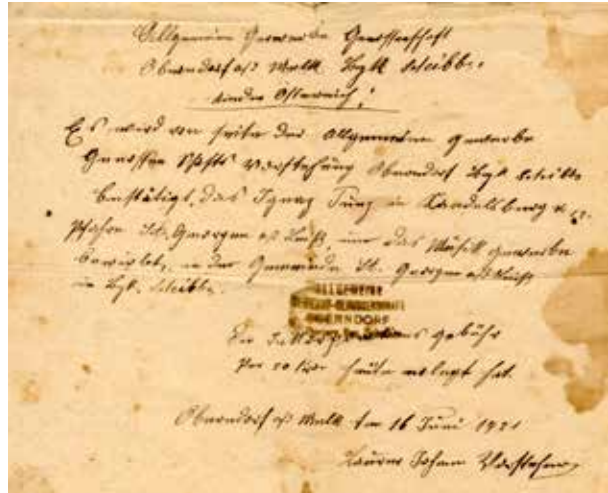 Allgemeine Gewerbe Genossenschaft
Oberndorf a/d Melk Bzk Scheibbs
Nieder Österreich!
Es wird von seite der Allgemeinen Gewerbe
Genossen Schafts Vorstehung Oberndorf Bzk Scheibbs
bestätigt, das Ignaz in
Pfarre St. Georgen a/d Leiß, um das Musik gewerbe
bewirbt, in der Gemeinde St. Georgen a/d Leiß
in Bzk. Scheibbs.
ALLGEMEINE
OBERNDORF
Die gebühr
per 20 heute erlegt hat.
Oberndorf a/d Melk am 16 Juni 1921
Johann Vorsteher